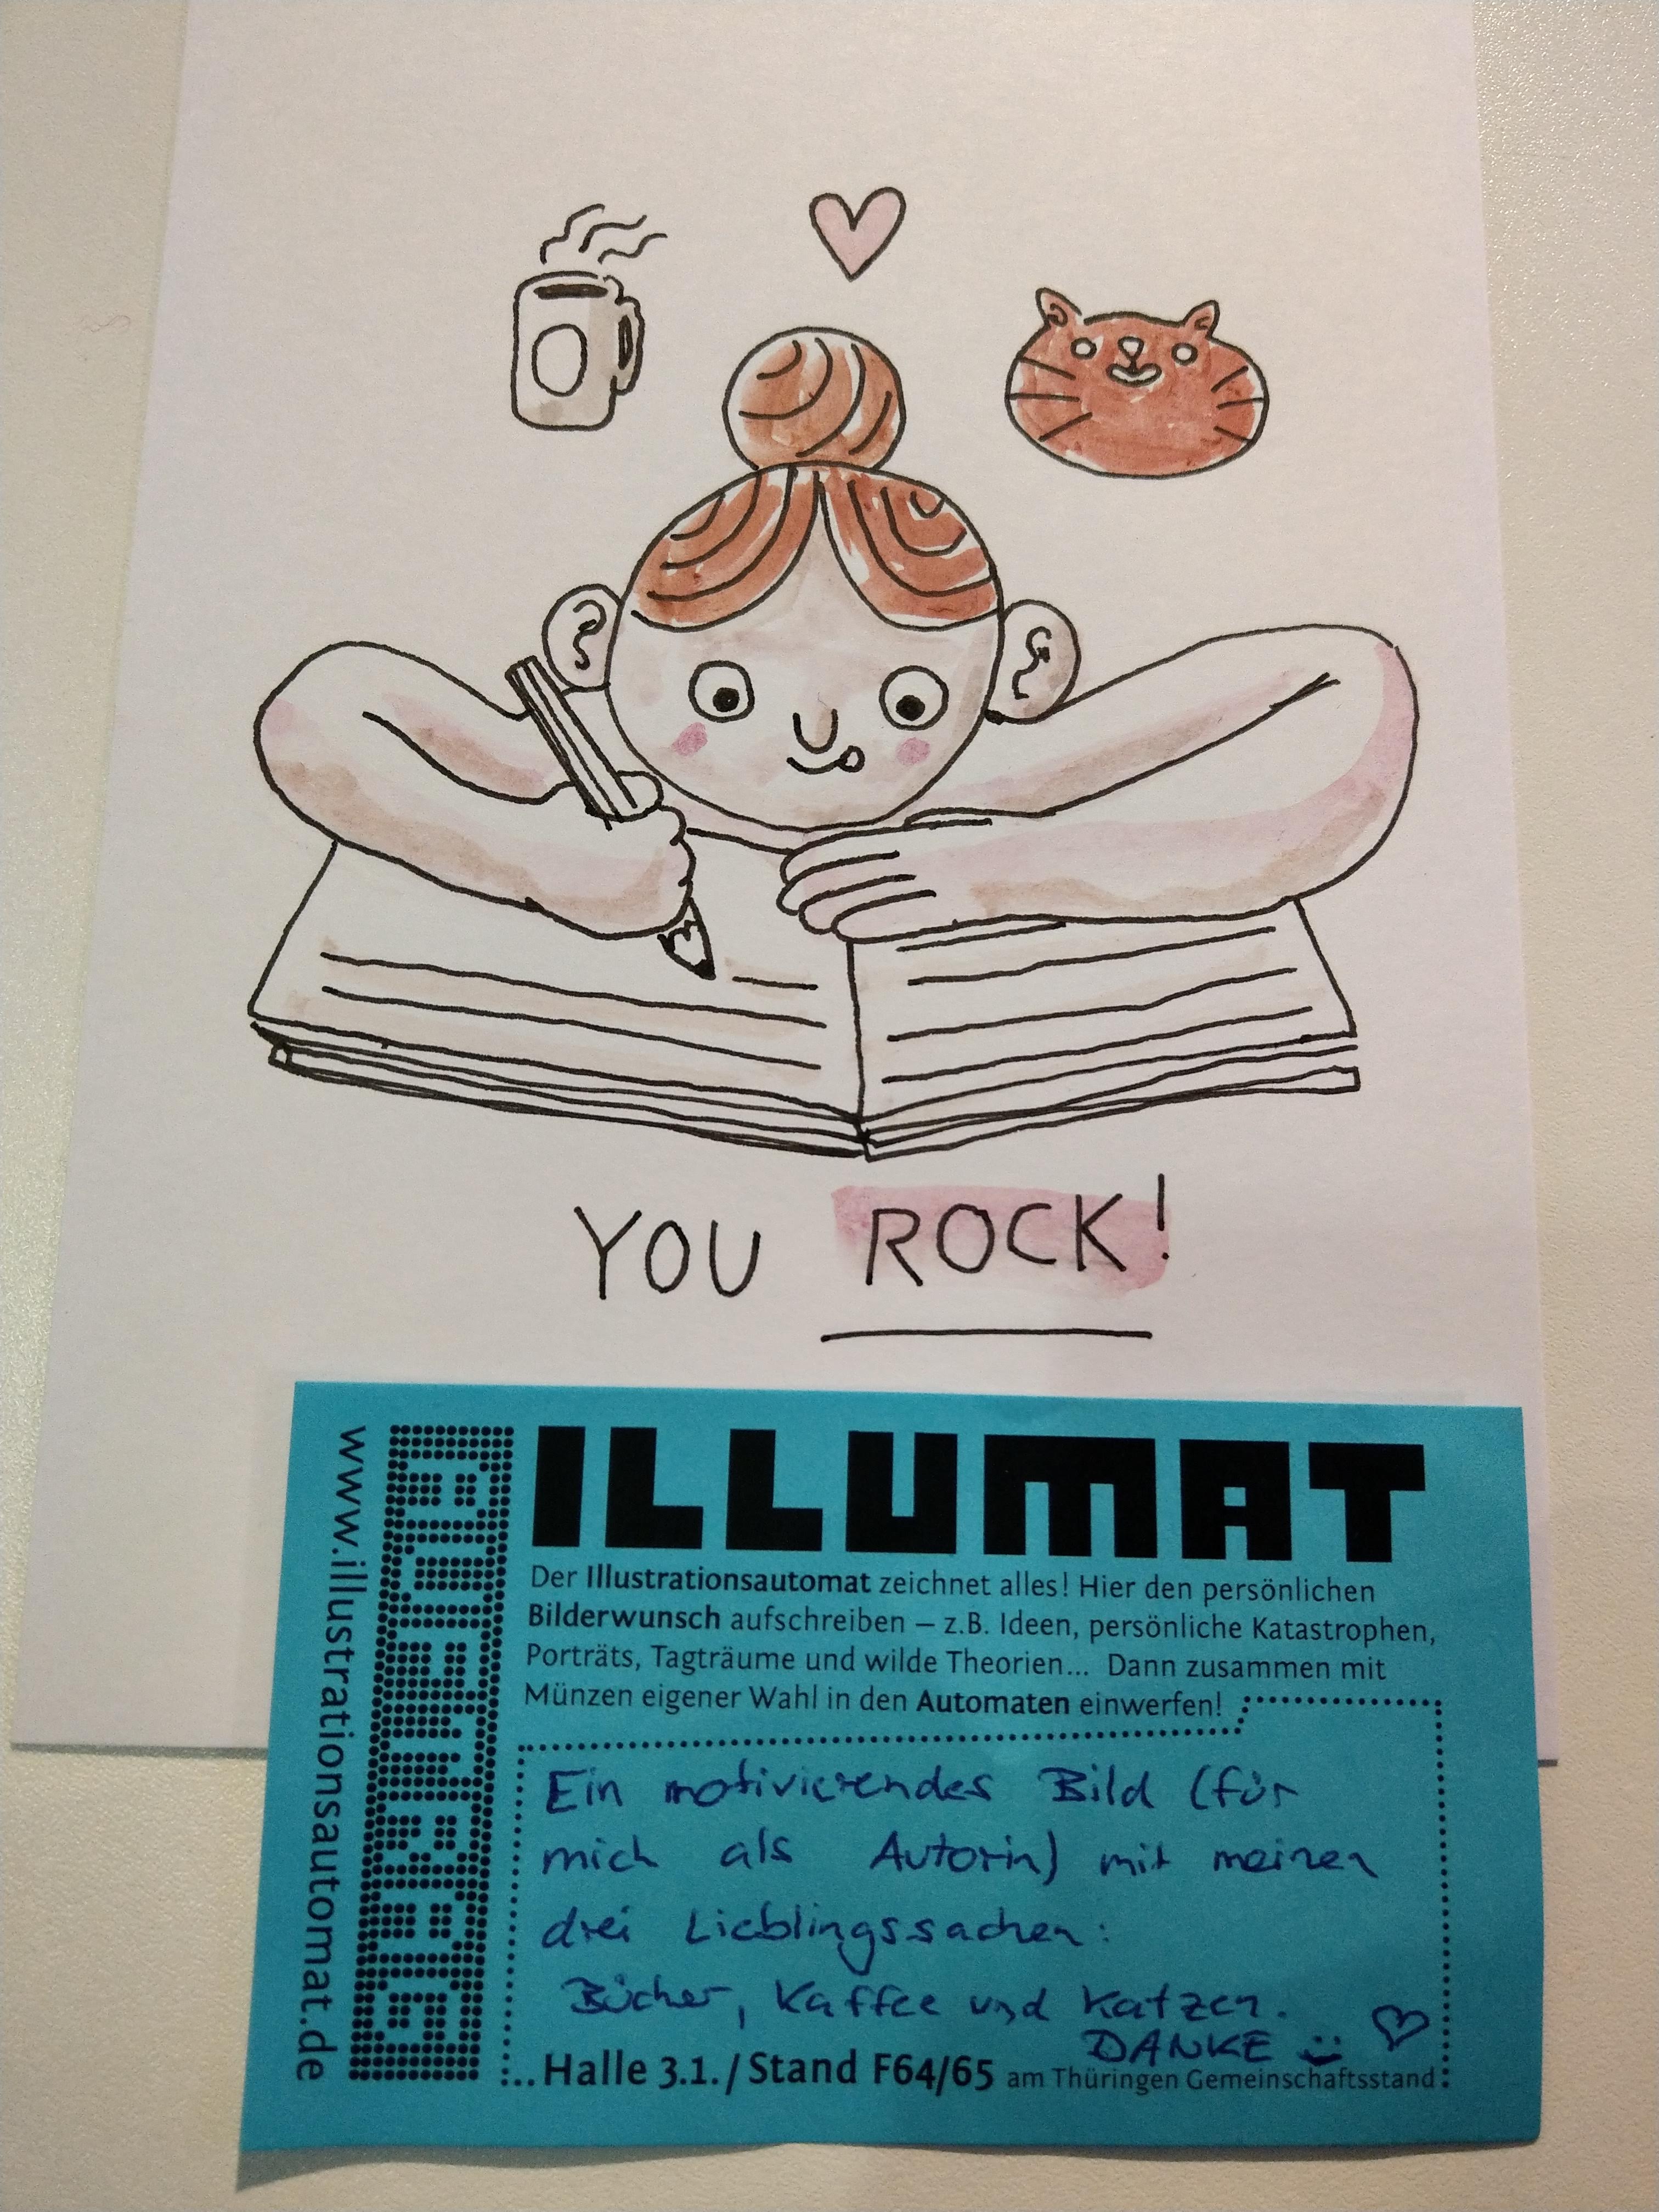 YOU ROCK!
ILLUMAT
Der Illustrationsautomat zeichnet alles! Hier den persönlichen
Bilderwunsch aufschreiben – z.B. Ideen, persönliche Katastrophen,
Porträts, Tagträume und wilde Theorien... Dann zusammen mit
Münzen eigener Wahl in den Automaten einwerfen!
Ein motivierendes Bild (für
mich als Autorin) mit meinen
drei Lieblingssachen:
Bücher, Kaffee und Katzen.
DANKE
Halle 3.1./Stand F64/65 am Thüringen Gemeinschaftsstand
www.illustrationsautomat.de